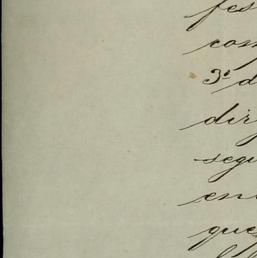 fes
com
3º d
dir
segu
en
que